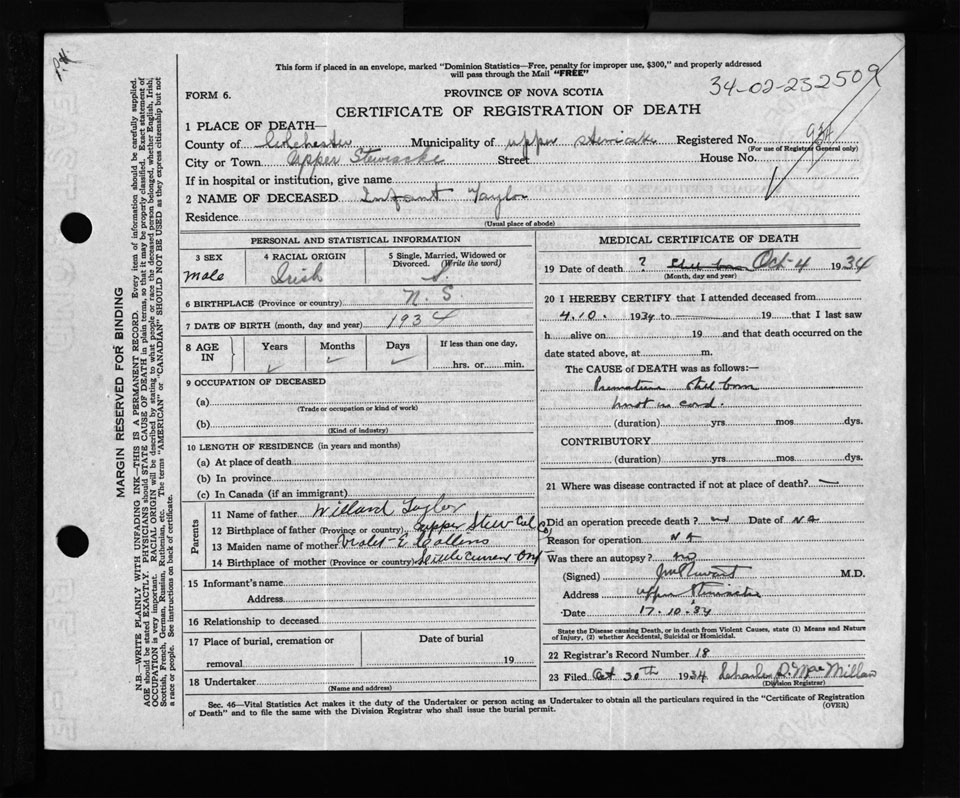 This form if placed in an envelope, marked "Dominion Statistics—Free, penalty for improper use, $300," and properly addressed
will pass through the Mail "FREE"
34-02-232509
FORM 6.
PROVINCE OF NOVA SCOTIA
CERTIFICATE OF REGISTRATION OF DEATH
1 PLACE OF DEATH—
County of Colchester Municipality of Upper Stewiacke Registered No. 934
(For use of Registrar General only)
City or Town Upper Stewiacke Street House No.
If in hospital or institution, give name
2 NAME OF DECEASED Infant Taylor
Residence
(Usual place of abode)
PERSONAL AND STATISTICAL INFORMATION
3 SEX 4 RACIAL ORIGIN 5 Single, Married, Widowed or Divorced. (Write the word)
Male Irish S
6 BIRTHPLACE (Province or country) N. S
7 DATE OF BIRTH (month, day and year) 1934
8 AGE IN Years Months Days If less than one day,
hrs. or min.
9 OCCUPATION OF DECEASED
(a)
(Trade or occupation or kind of work)
(b)
(Kind of industry)
10 LENGTH OF RESIDENCE (in years and months)
(a) At place of death
(b) In province
(c) In Canada (if an immigrant)
Parents
11 Name of father Willard Taylor
12 Birthplace of father (Province or country) Upper Stew Col Co
13 Maiden name of mother Violet E
14 Birthplace of mother (Province or country) Little Current Ont
15 Informant's name
Address
16 Relationship to deceased
17 Place of burial, cremation or removal Date of burial
19
18 Undertaker
(Name and address)
MEDICAL CERTIFICATE OF DEATH
19 Date of death ? Still born Oct-4 1934
(Month, day and year)
20 I HEREBY CERTIFY that I attended deceased from
4.10. 1934 to 19 that I last saw
h alive on 19 and that death occurred on the
date stated above, at m.
The CAUSE of DEATH was as follows:—
Premature Still born
knot in cord.
(duration) yrs mos dys.
CONTRIBUTORY
(duration) yrs mos dys.
21 Where was disease contracted if not at place of death?
Did an operation precede death? no Date of NA
Reason for operation NA
Was there an autopsy? no
(Signed) M.D.
Address Upper Stewiacke
Date 17.10.34
State the Disease causing Death, or in death from Violent Causes, state (1) Means and Nature
of Injury, (2) whether Accidental, Suicidal or Homicidal.
22 Registrar's Record Number 18
23 Filed Oct 30th 1934 Charles D. MacMillan
(Division Registrar)
Sec. 46—Vital Statistics Act makes it the duty of the Undertaker or person acting as Undertaker to obtain all the particulars required in the "Certificate of Registration
of Death" and to file the same with the Division Registrar who shall issue the burial permit.
(OVER)
MARGIN RESERVED FOR BINDING
N.B.—WRITE PLAINLY WITH UNFADING INK—THIS IS A PERMANENT RECORD. Every item of information should be carefully supplied.
AGE should be stated EXACTLY. PHYSICIANS should STATE CAUSE OF DEATH in plain terms, so that it may be properly classified. Exact statement of
OCCUPATION is very important. RACIAL ORIGIN will be described by stating to what people or race the deceased person belonged, whether English, Irish,
Scottish, French, German, Russian, Ruthenian, etc. The terms "AMERICAN" or "CANADIAN" SHOULD NOT BE USED as they express citizenship but not
a race or people. See instructions on back of certificate.